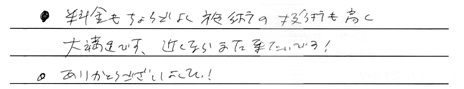 ● 料金もちょうどよく施術の技術も高く
大満足です、近くならまた来たいです!
● ありがとうございました!